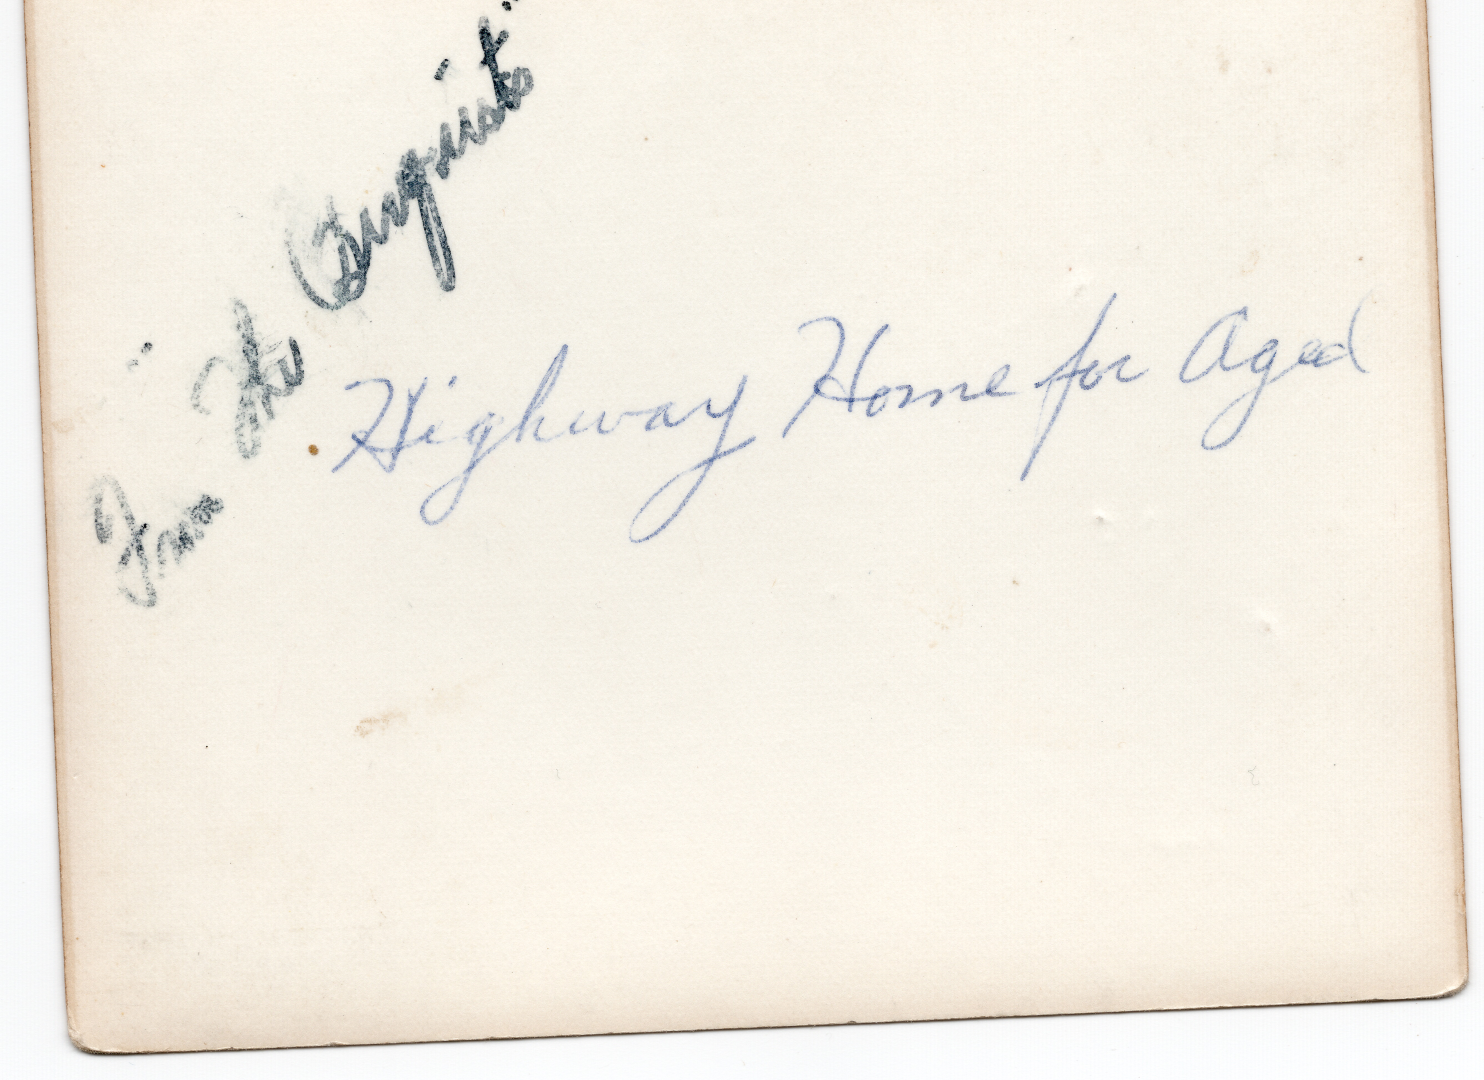 From The Burquists
Highway Home for Aged